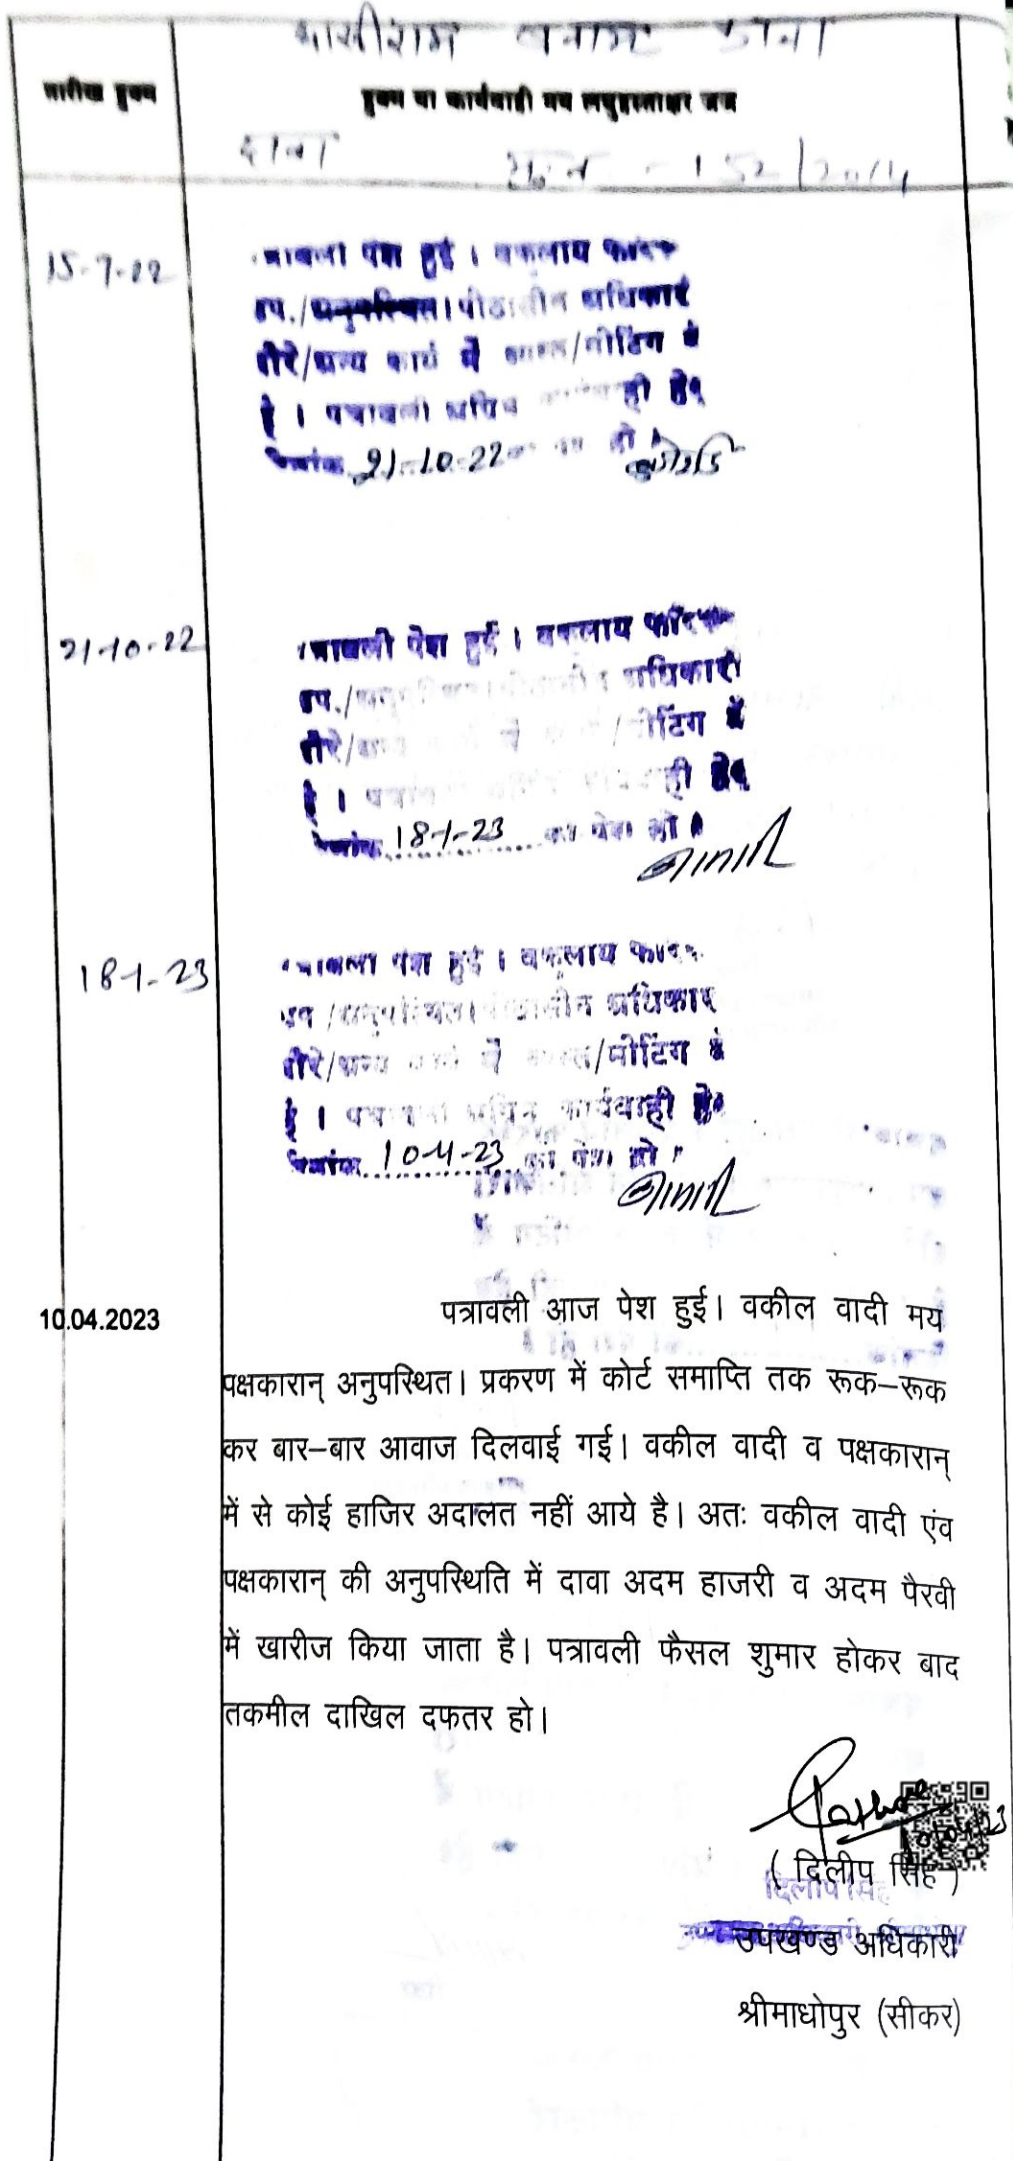 बनाम
तारीख हुक्म
हुक्म या कार्यवाही मय लघुहस्ताक्षर जज
दावा - 152/2014
15-7-22
पेश हुई । वकलाय
उप./अनुपस्थित। पीठासीन अधिकारी
दौरे/अन्य कार्य में व्यस्त/मीटिंग में
है । पत्रावली हेतु
दिनांक 21-10-22 हो ।
21-10-22
पत्रावली पेश हुई । वकलाय
उप./ अधिकारी
दौरे/ में /मीटिंग में
है । हेतु
दिनांक 18-1-23 को पेश हो ।
18-1-23
पेश हुई । वकलाय
उप /अनुपस्थित। पीठासीन अधिकारी
दौरे/अन्य में /मीटिंग में
है । कार्यवाही हेतु
दिनांक 10-4-23 को पेश हो
10.04.2023
पत्रावली आज पेश हुई। वकील वादी मय
पक्षकारान् अनुपस्थित। प्रकरण में कोर्ट समाप्ति तक रूक–रूक
कर बार–बार आवाज दिलवाई गई। वकील वादी व पक्षकारान्
में से कोई हाजिर अदालत नहीं आये है। अतः वकील वादी एंव
पक्षकारान् की अनुपस्थिति में दावा अदम हाजरी व अदम पैरवी
में खारीज किया जाता है। पत्रावली फैसल शुमार होकर बाद
तकमील दाखिल दफतर हो।
( दिलीप सिंह )
दिलीप सिंह
उपखण्ड अधिकारी
श्रीमाधोपुर (सीकर)